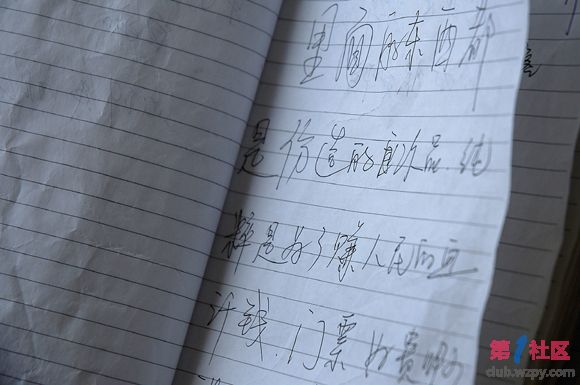 里面的东西都
是仿造的次品 纯
粹是为了赚人民的血
汗钱.门票好贵
第1社区
club.wzpy.com